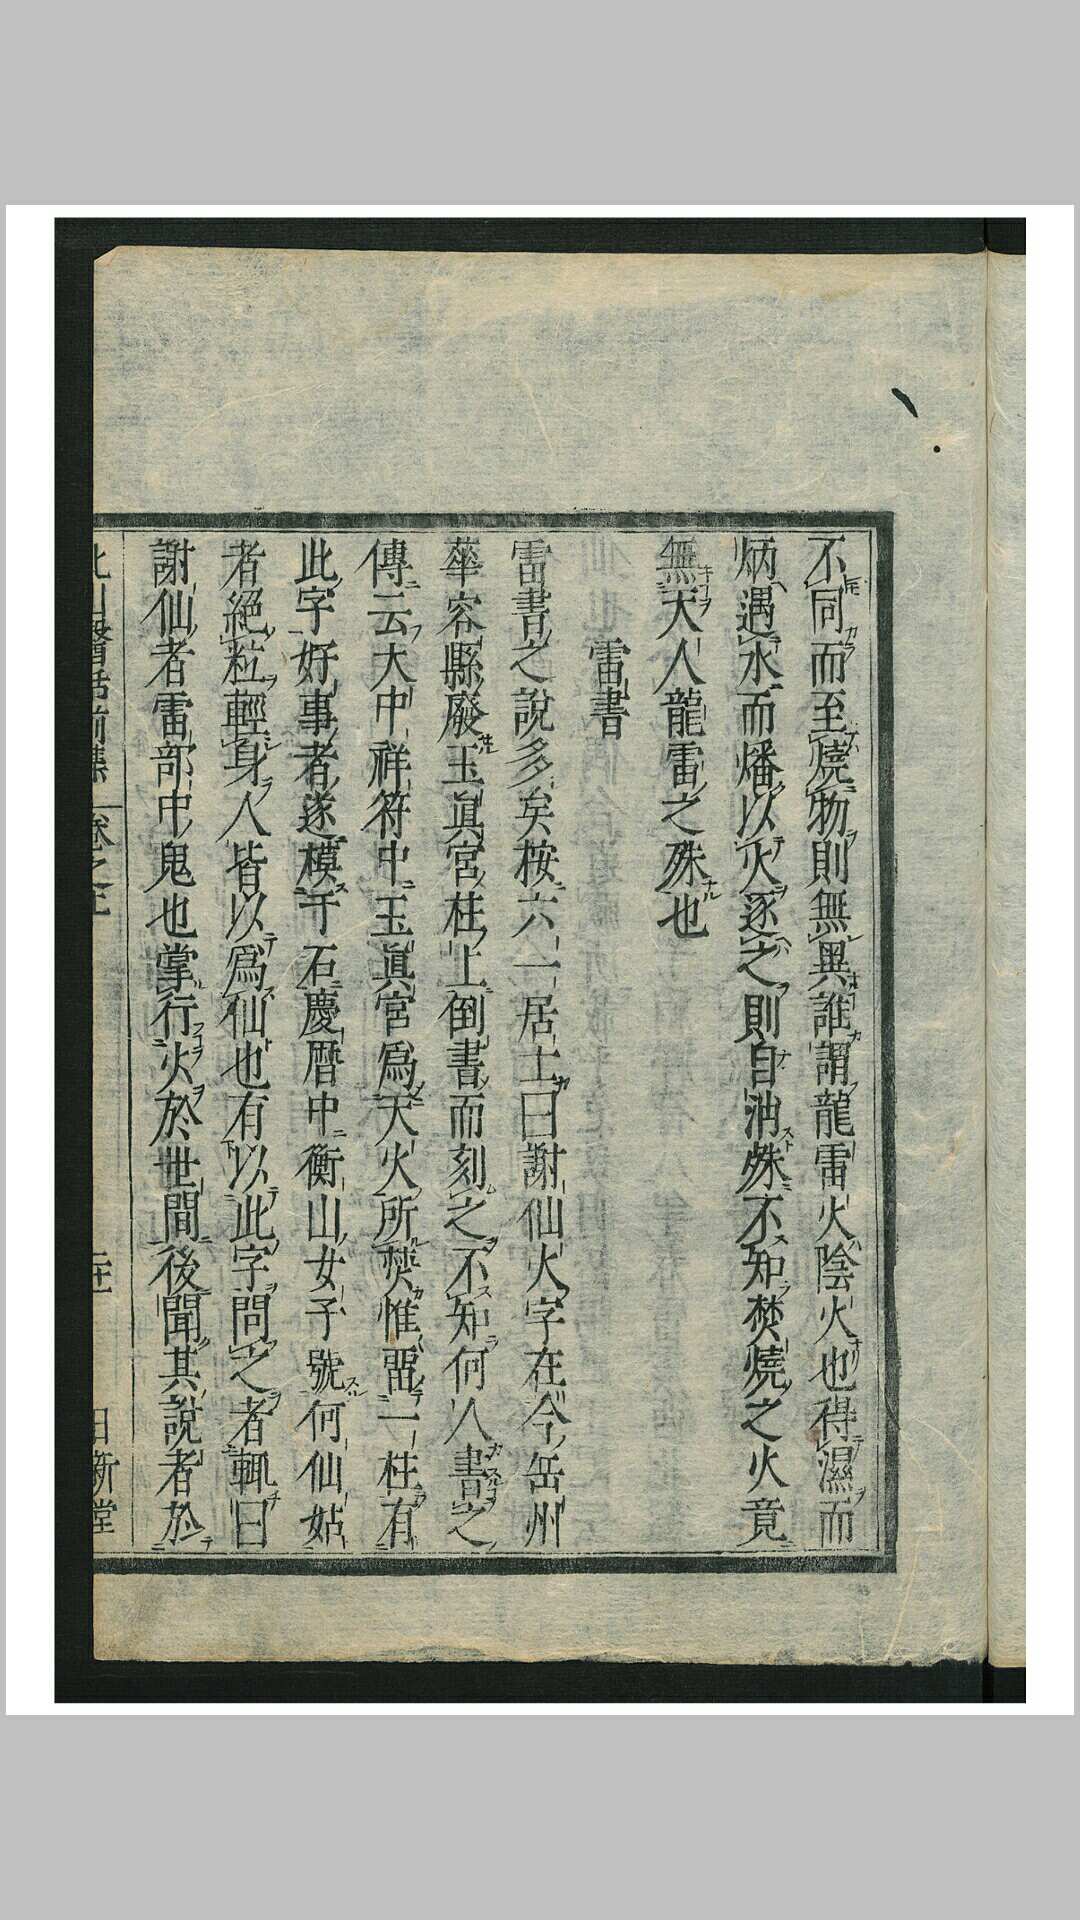 不同而至燒物則無異誰謂龍雷火陰火也得濕而
炳遇水而燔以火逐之則自消殊不知焚燒之火竟
無天人龍雷之殊也
雷書
雷書之說多矣按六一居士曰謝仙火字在今岳州
華容縣廢玉眞宮柱上倒書而刻之不知何人書之
傳云大中祥符中玉眞宮爲天火所焚惟留一柱有
此字好事者遂模于石慶曆中衡山女子號何仙姑
者絕粒輕身人皆以爲仙也有以此字問之者輒曰
謝仙者雷部中鬼也掌行火於世間後聞其說者於
北山醫話前集 卷之上 二十一 日新堂